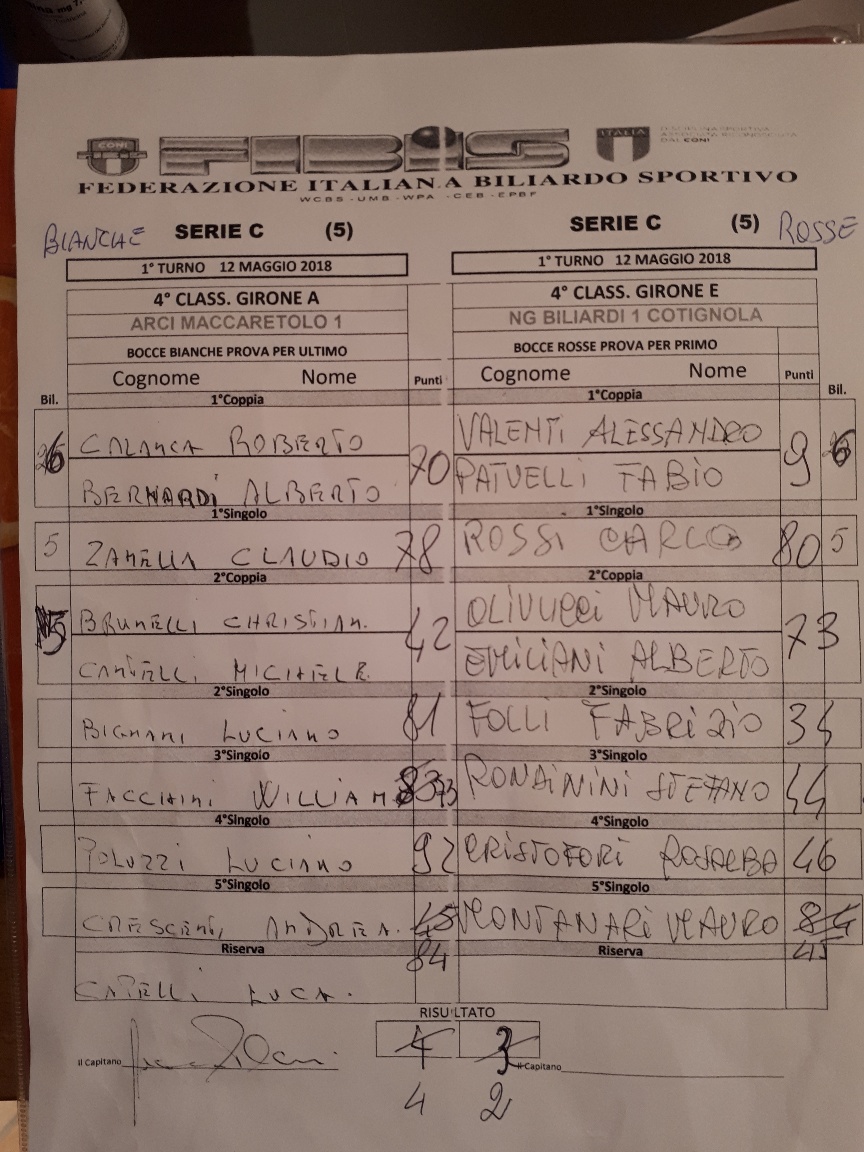 CONI FIBiS ITALIA
FEDERAZIONE ITALIANA BILIARDO SPORTIVO
WCBS - UMB - WPA - CEB - EPBF
BIANCHE SERIE C (5) SERIE C (5) ROSSE
1° TURNO 12 MAGGIO 2018 1° TURNO 12 MAGGIO 2018
4° CLASS. GIRONE A 4° CLASS. GIRONE E
ARCI MACCARETOLO 1 NG BILIARDI 1 COTIGNOLA
BOCCE BIANCHE PROVA PER ULTIMO BOCCE ROSSE PROVA PER PRIMO
Cognome Nome Punti Cognome Nome Punti
Bil. 1°Coppia 1°Coppia Bil.
6 CALANCA ROBERTO 70 VALENTI ALESSANDRO 9 6
BERNARDI ALBERTO PATUELLI FABIO
1°Singolo 1°Singolo
5 ZANELLA CLAUDIO 78 ROSSI CARLO 80 5
2°Coppia 2°Coppia
5 BRUNELLI CHRISTIAN. 42 OLIVUCCI MAURO 73
CANTELLI MICHELE EMILIANI ALBERTO
2°Singolo 2°Singolo
BIGNAMI LUCIANO 81 FOLLI FABRIZIO 34
3°Singolo 3°Singolo
FACCHINI WILLIAM STEFANO 44
4°Singolo 4°Singolo
POLUZZI LUCIANO 92 CRISTOFORI ROSALBA 46
5°Singolo 5°Singolo
CRESCENTI ANDREA. 45 MONTANARI MAURO 84
Riserva 84 Riserva 45
CAPELLI LUCA.
RISULTATO
4 3
il Capitano il Capitano
4 2